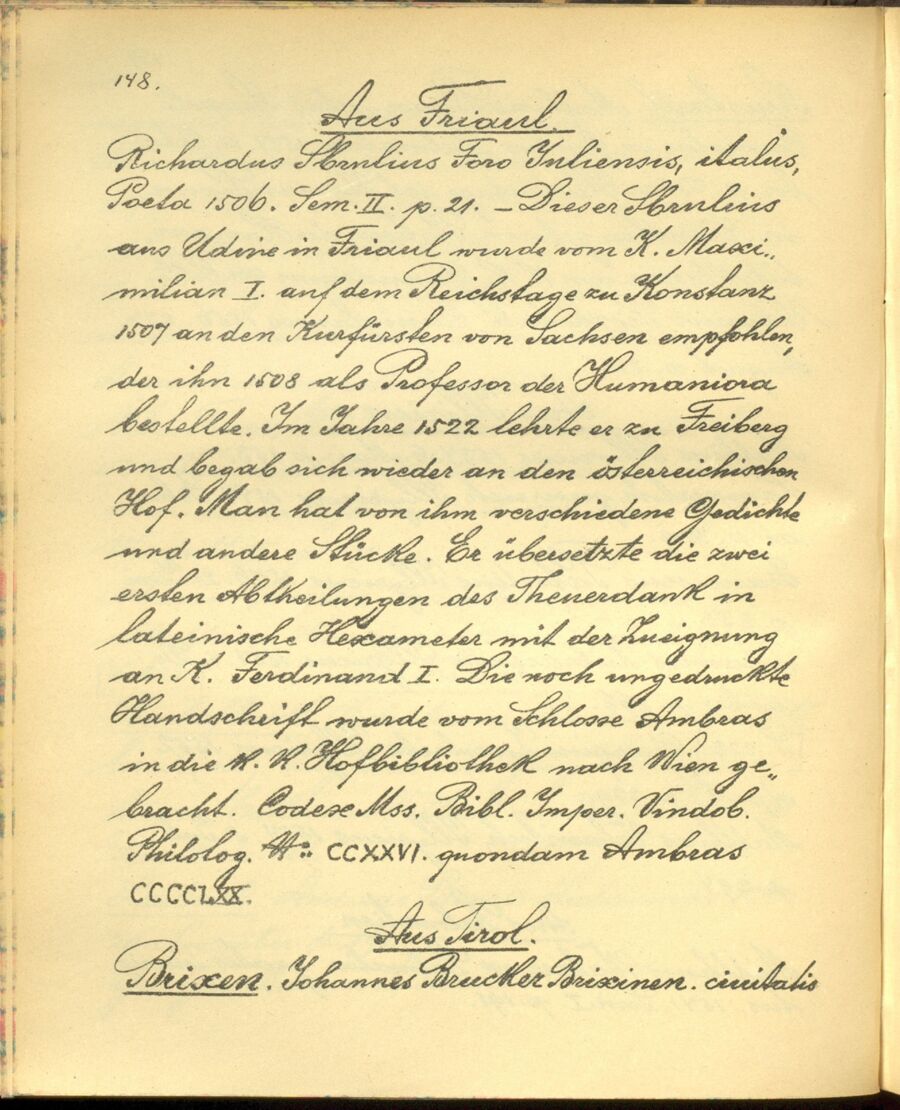 148.
Aus Friaul.
Richardus Sbrulius Foro Juliensis, italus,
Poeta 1506. Sem. II. p. 21. – Dieser Sbrulius
aus Udine in Friaul wurde vom K. Maxi„
milian I. auf dem Reichstage zu Konstanz
1507 an den Kurfürsten von Sachsen empfohlen,
der ihn 1508 als Professor der Humaniora
bestellte. Im Jahre 1522 lehrte er zu Freiberg
und begab sich wieder an den österreichischen
Hof. Man hat von ihm verschiedene Gedichte
und andere Stücke. Er übersetzte die zwei
ersten Abtheilungen des Theuerdank in
lateinische Hexameter mit der Zueignung
an K. Ferdinand I. Die noch ungedruckte
Handschrift wurde vom Schlosse Ambras
in die k. k. Hofbibliothek nach Wien ge„
bracht. Codex Mss. Bibl. Imper. Vindob.
Philolog. N: CCXXVI. quondam Ambras
CCCCLXX.
Aus Tirol.
Brixen. Johannes Brucker Brixinen. ciuitatis